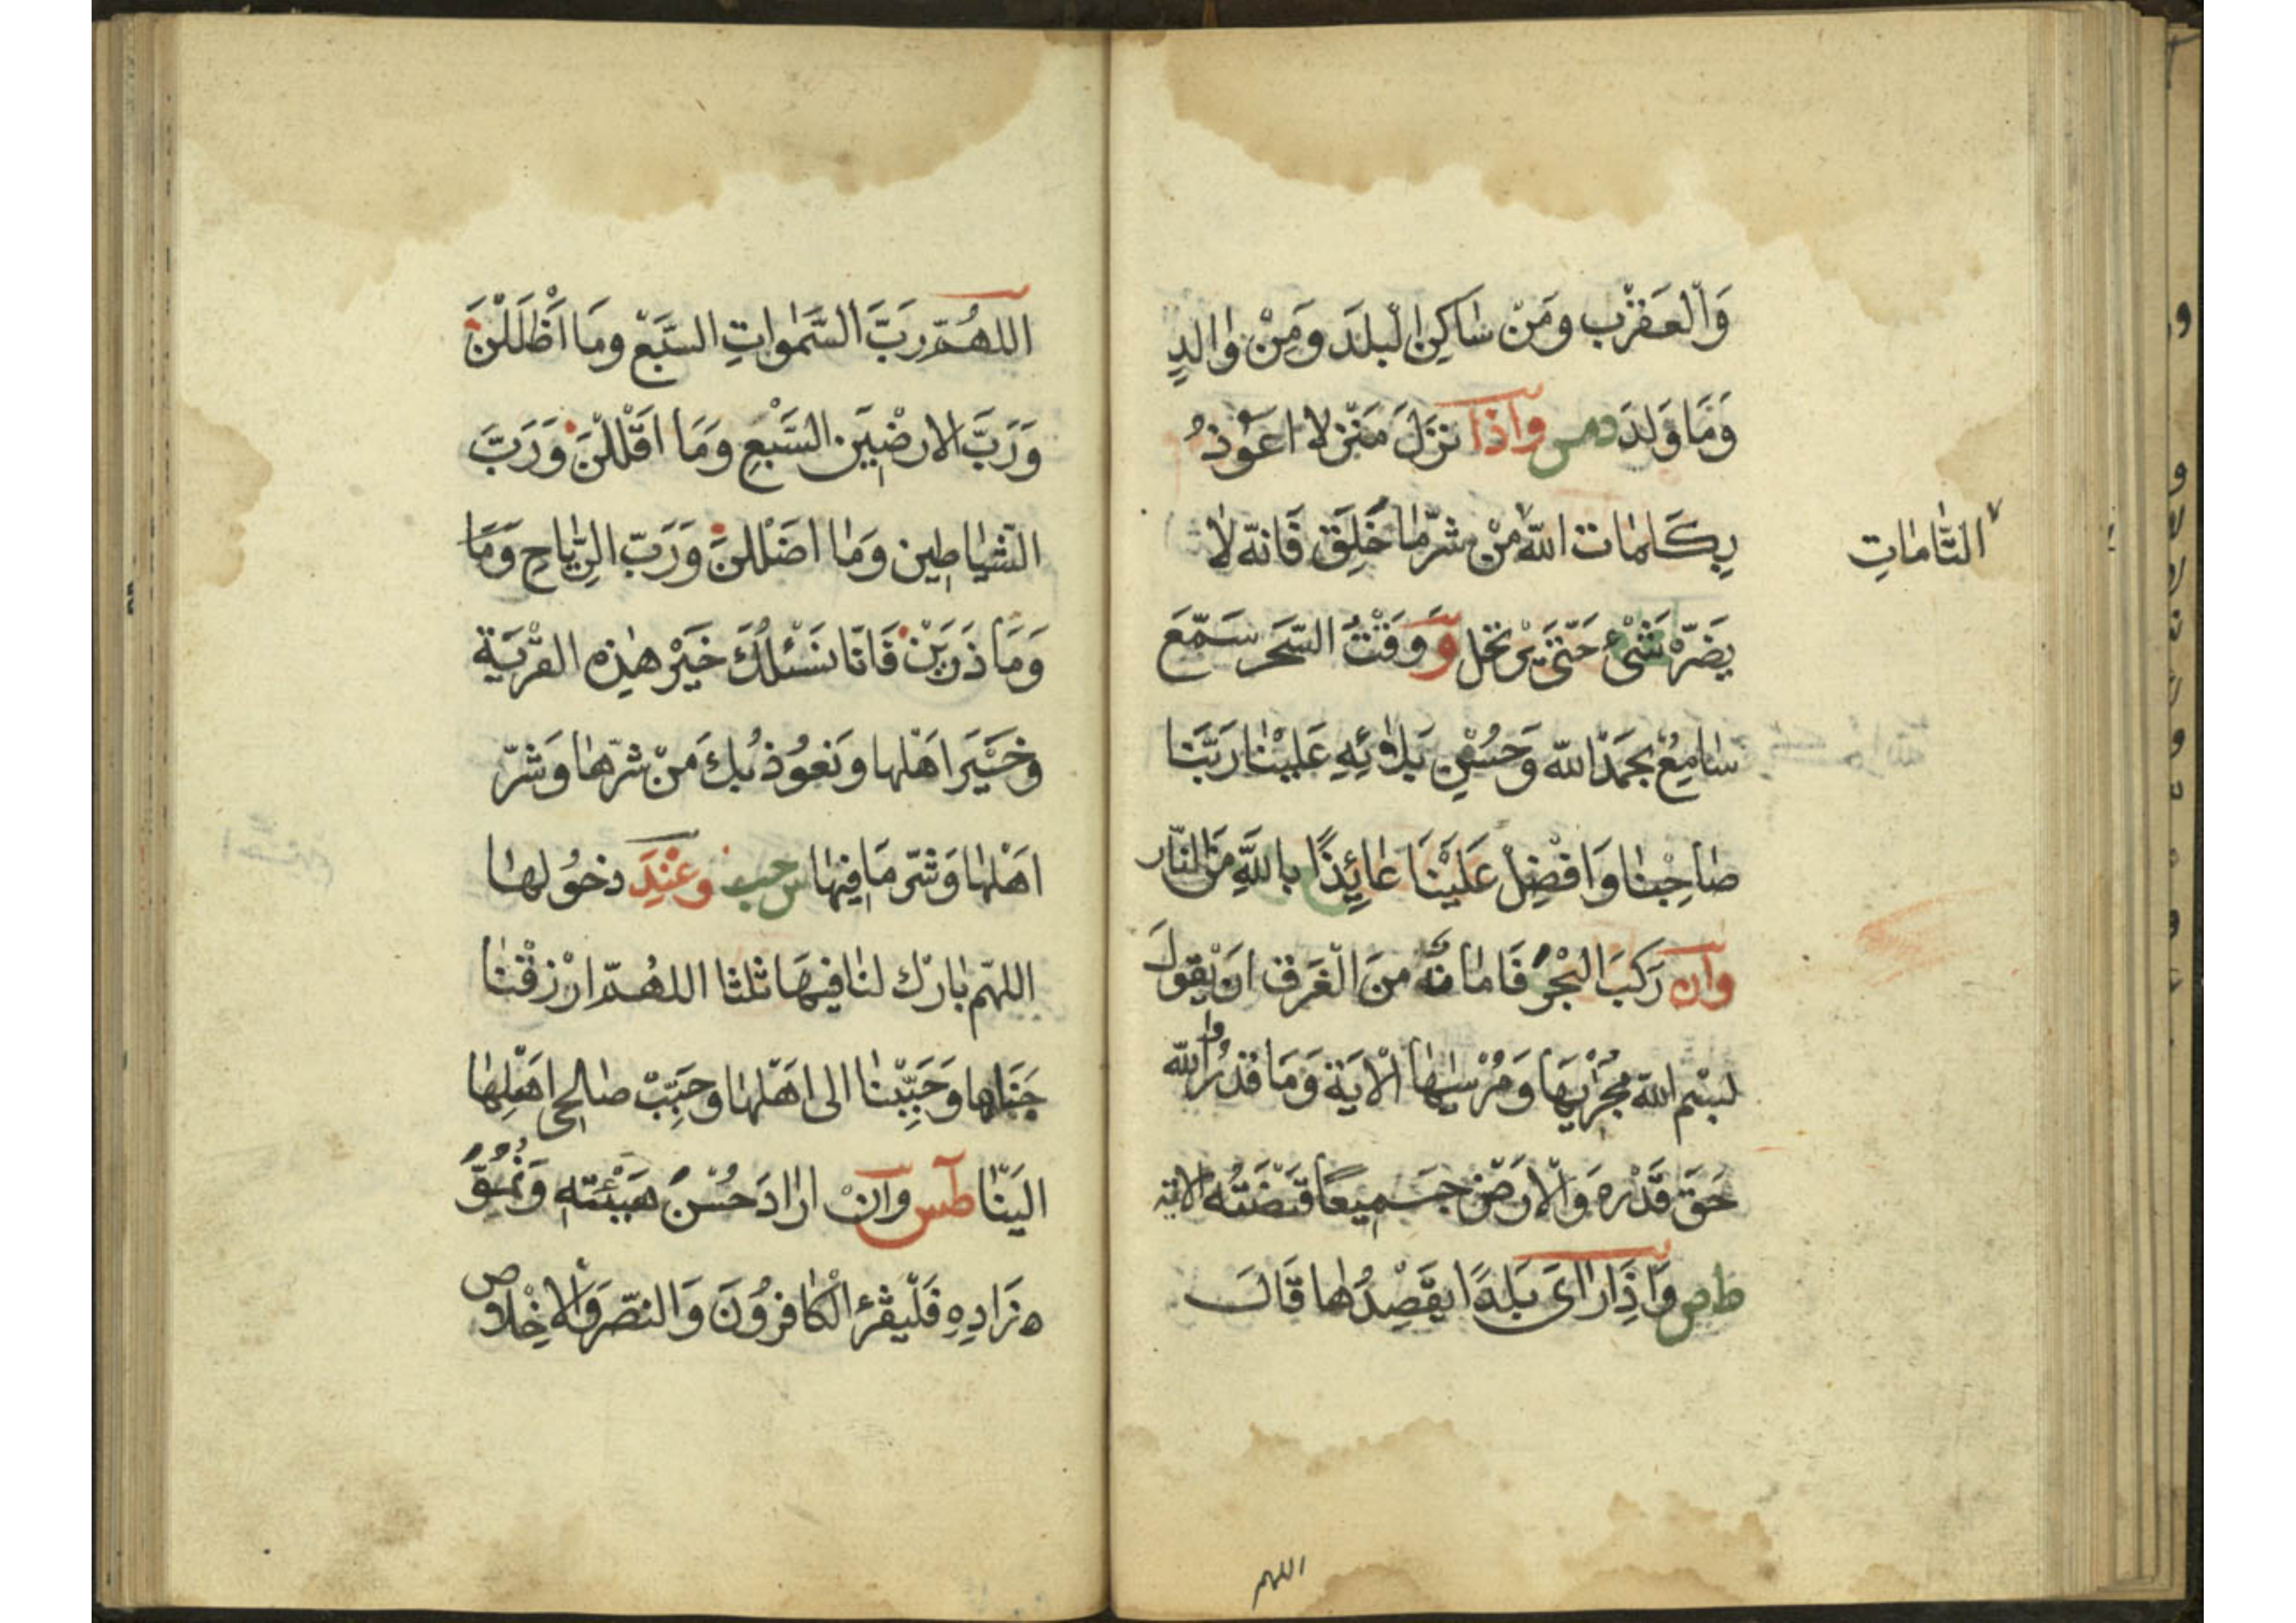 وَالْعَقْرَبِ وَمِنْ سَاكِنِ الْبَلَدِ وَمِنْ وَالِدٍ
وَمَا وَلَدَ دمس وَاِذَا نَزَلَ مَنْزِلًا اَعُوْذُ
بِكَلِمَاتِ اللّٰهِ مِنْ شَرِّ مَا خَلَقَ فَاِنَّه لَا
التَّامَاتِ
يَضُرُّه شَىْءٌ حَتّٰى يَرْتَحِل وَوَقْتُ السَّحَرِ سَمَّعَ
سَامِعٌ بِحَمْدِ اللّٰهِ وَحُسْنِ بَلَائِهِ عَلَيْنَا رَبَّنَا
صَاحِبْنَا وَاَفْضِلْ عَلَيْنَا عَائِذًا بِاللّٰهِ مِنَ النَّار
وَاِن رَكِبَ الْبَحْرَ فَاَمَانُه مِنَ الْغَرَقِ اَنْ يَقُولَ
بِسْمِ اللّٰهِ مَجْرٰيهَا وَمُرْسٰيهَا الْاٰيَةَ وَمَا قَدَرُوا اللّٰه
حَقَّ قَدْرِه وَالْاَرْضُ جَمِيعًا قَبْضَتُه الاية
ط ص وَاِذَا رَاَى بَلَدًا يَقْصِدُهَا قَالَ
اللهم
اَللّٰهُمَّ رَبَّ السَّمٰوَاتِ السَّبْعِ وَمَا اَظْلَلْنَ
وَرَبَّ الْاَرَضِيْنَ السَّبْعِ وَمَا اَقْلَلْنَ وَرَبَّ
الشَّيَاطِين وَمَا اَضْلَلْنَ وَرَبَّ الرِّيَاحِ وَمَا
وَمَا ذَرَيْنَ فَاِنَّا نَسْئَلُكَ خَيْرَ هٰذِه الْقَرْيَةِ
وَخَيْرَ اَهْلِهَا وَنَعُوْذُ بِكَ مِنْ شَرِّهَا وَشَرِّ
اَهْلِهَا وَشَرِّ مَا فِيْهَا س حب وَعِنْدَ دُخُولِهَا
اللّٰهُمَّ بَارِك لَنَا فِيهَا ثلثا اللّٰهُمَّ ارْزُقْنَا
جَنَاهَا وَحَبِّبْنَا اِلى اَهْلِهَا وَحَبِّبْ صَالِحِى اَهْلِهَا
اِلَيْنَا طس وَاِنْ اَرَادَ حُسْنَ هَيْئَتِه وَنُمُوَّ
زَادِهِ فَلْيَقْرَءِ الْكَافِرُوْنَ وَالنَّصْرَ وَالْاِخْلَاص